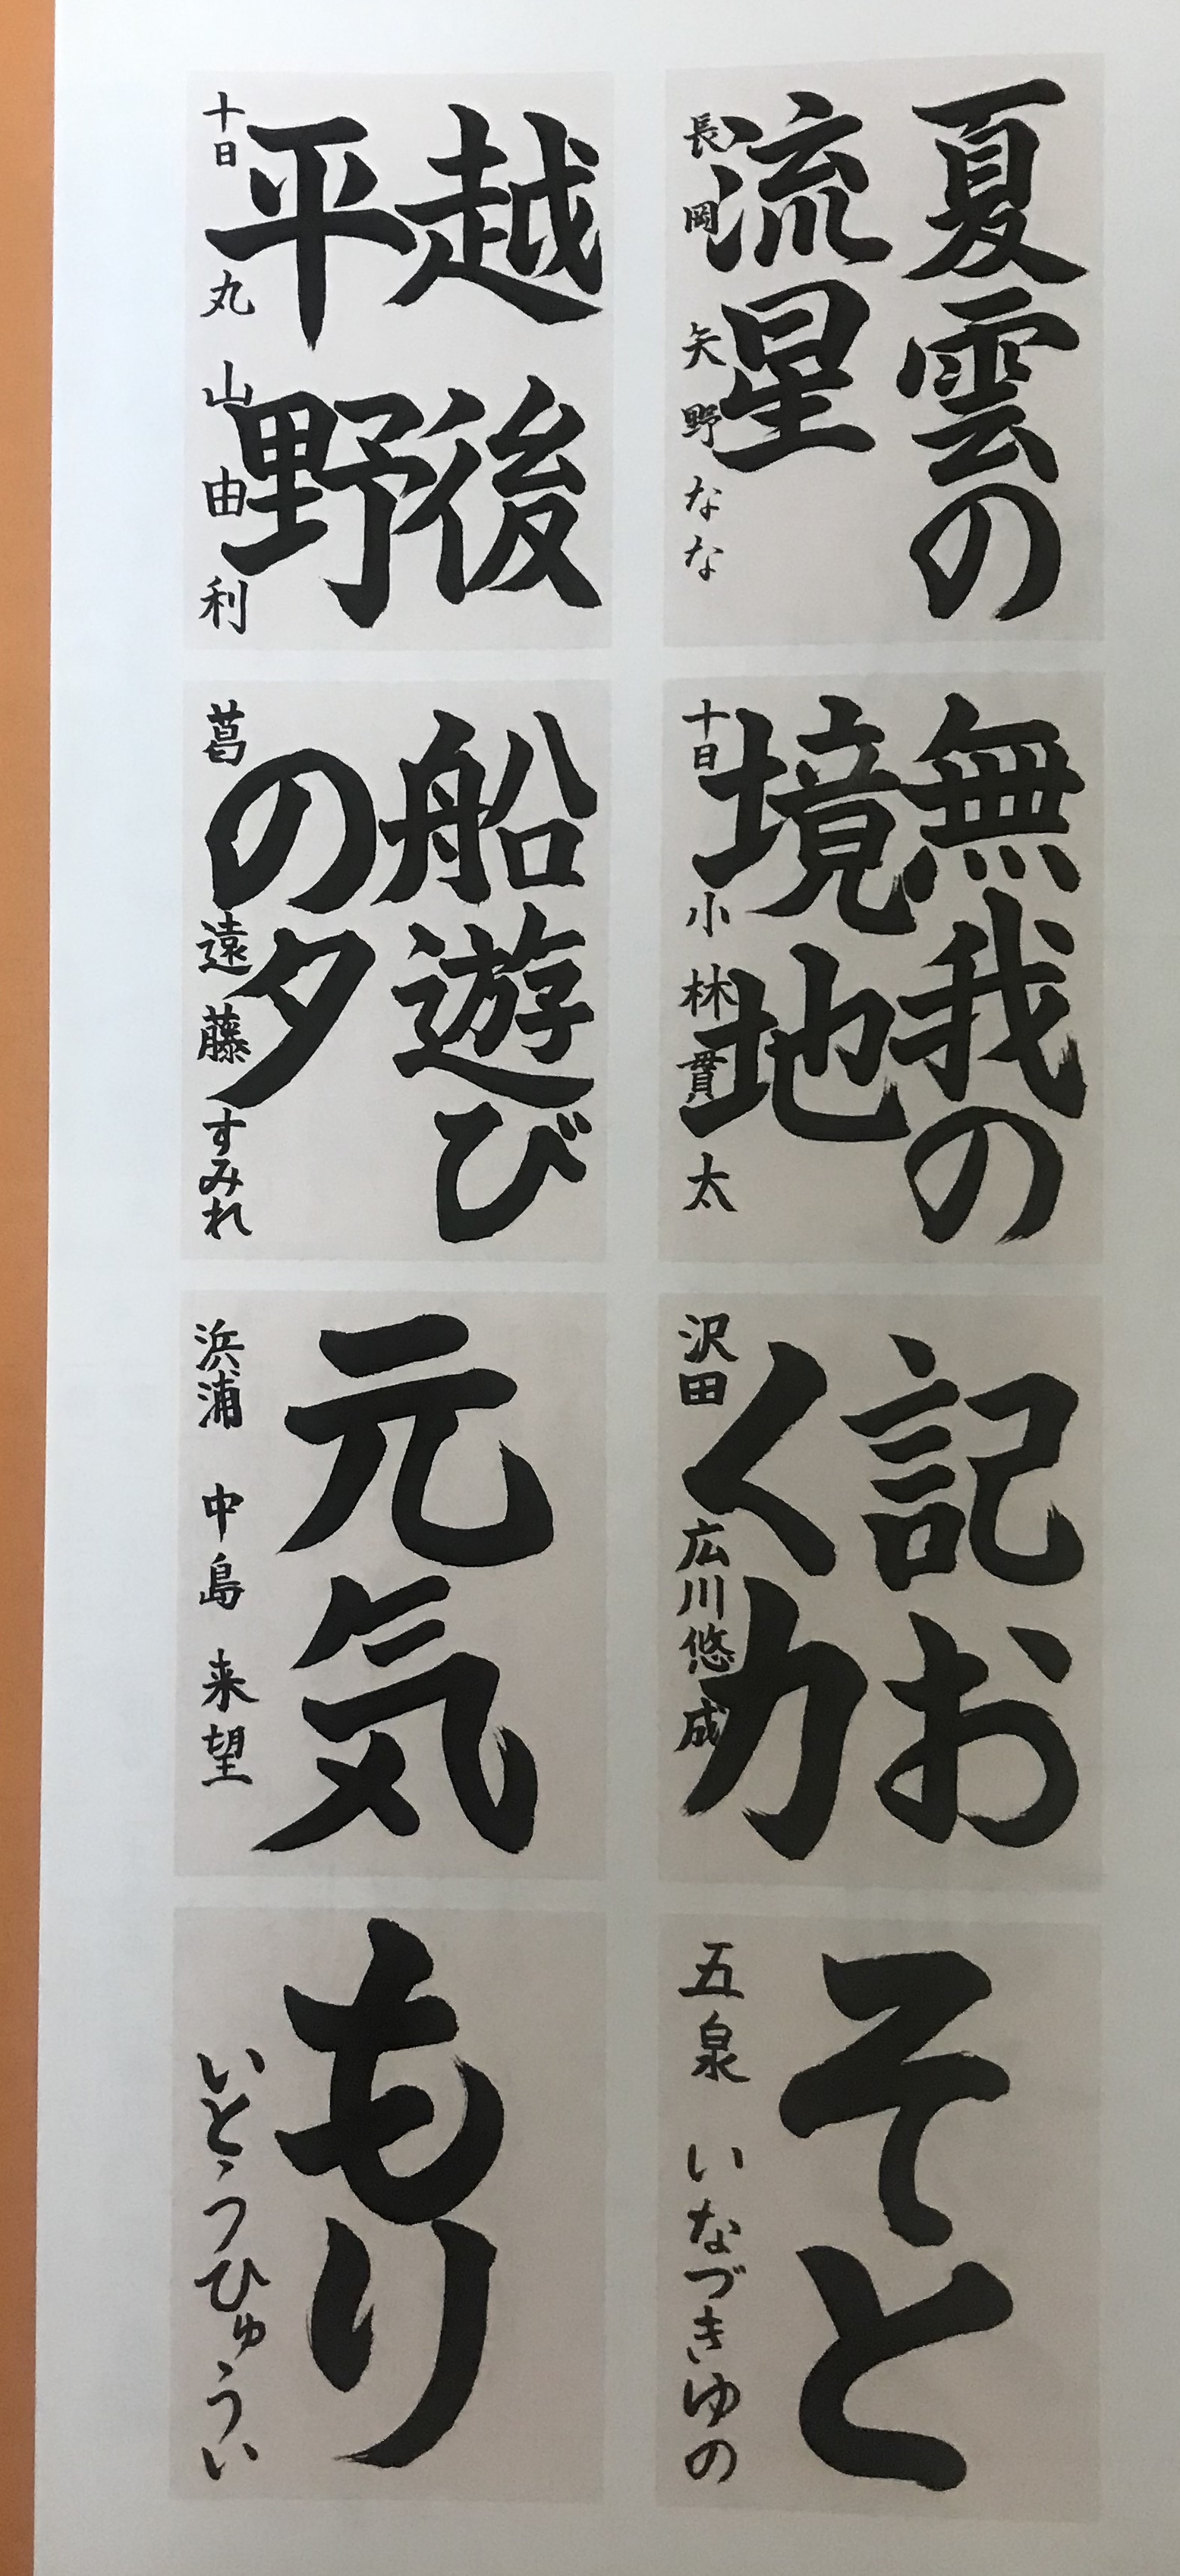 夏雲の
流星
長岡 矢野なな
越後
平野
十日 丸山由利
無我の
境地
十日 小林貫太
船遊び
の夕
葛 遠藤すみれ
記お
く力
沢田 広川悠成
元気
浜浦 中島来望
そと
五泉 いなづきゆの
もり
いとうひゅうい